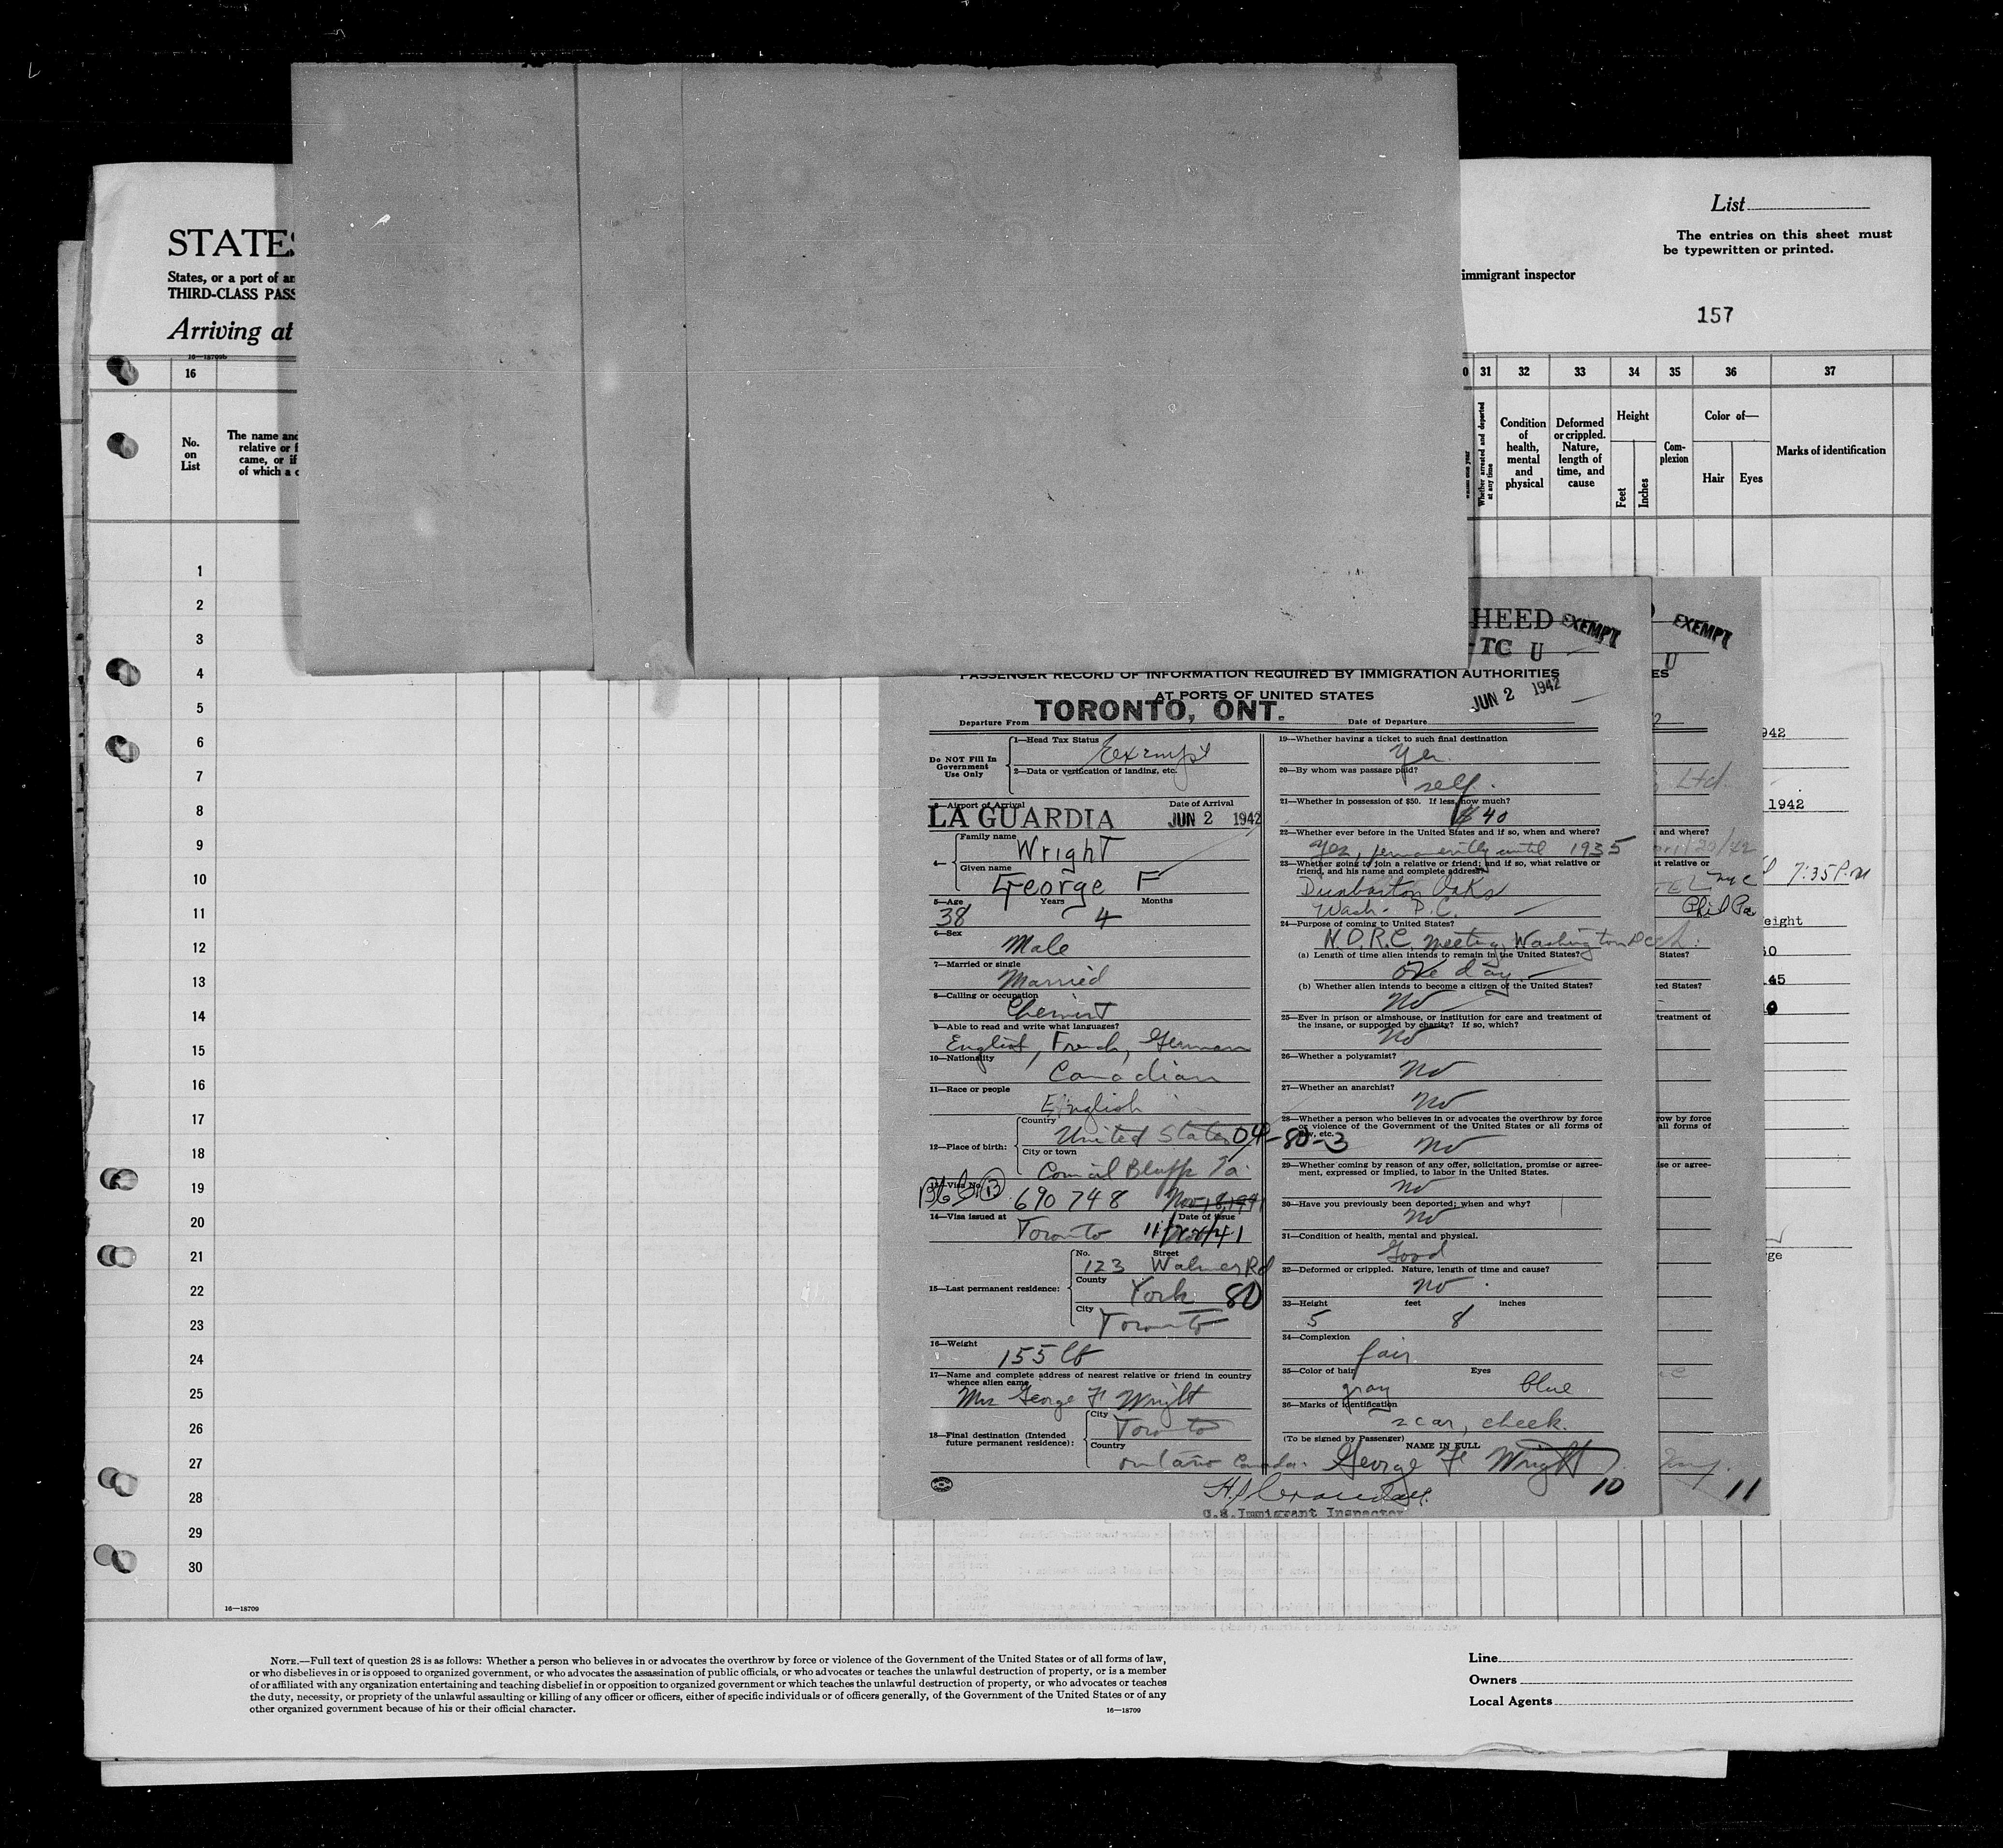 List
The entries on this sheet must
be typewritten or printed.
STATES
States, or a port of
THIRD-CLASS PASS
immigrant inspector
157
Arriving at
16—18709b
16
31 32 33 34 35 36 37
No.
on
List
The name and
relative or
came, or if
of which a
Whether arrested and deported
at any time
Condition
of
health,
mental
and
physical
Deformed
or crippled.
Nature,
length of
time, and
cause
Height
Feet
Inches
Com-
plexion
Color of—
Hair
Eyes
Marks of identification
1
2
3
4
5
6
7
8
9
10
11
12
13
14
15
16
17
18
19
20
21
22
23
24
25
26
27
28
29
30
HEED EXEMPT
TC U
PASSENGER RECORD OF INFORMATION REQUIRED BY IMMIGRATION AUTHORITIES
AT PORTS OF UNITED STATES
Departure From TORONTO, ONT.
Date of Departure JUN 2 1942
Do NOT Fill In
Government
Use Only
1—Head Tax Status
Exempt
2—Data or verification of landing, etc.
3—Airport of Arrival
Date of Arrival
LA GUARDIA JUN 2 1942
Family name
Wright
4—
Given name
George F
5—Age Years Months
38 4
6—Sex
Male
7—Married or single
Married
8—Calling or occupation
Chemist
9—Able to read and write what languages?
English, French, German
10—Nationality
Canadian
11—Race or people
English
12—Place of birth:
Country
United States 04-80-3
City or town
Council Bluffs Ia.
13—Visa No.
690 748 Nov 18, 1941
14—Visa issued at
Date of Issue
Toronto
15—Last permanent residence:
No. Street
123 Walmer Rd
County
York 80
City
Toronto
16—Weight
155 lb
17—Name and complete address of nearest relative or friend in country
whence alien came
Mrs George F Wright
18—Final destination (Intended
future permanent residence):
City
Toronto
Country
Ontario Canada.
19—Whether having a ticket to such final destination
Yes.
20—By whom was passage paid?
self.
21—Whether in possession of $50. If less, how much?
$40
22—Whether ever before in the United States and if so, when and where?
Yes, permanently until 1935
23—Whether going to join a relative or friend; and if so, what relative or
friend, and his name and complete address?
Dunbarton Oaks
Wash. D.C.
24—Purpose of coming to United States?
N.D.R.C. meeting, Washington
(a) Length of time alien intends to remain in the United States?
One day
(b) Whether alien intends to become a citizen of the United States?
No
25—Ever in prison or almshouse, or institution for care and treatment of
the insane, or supported by charity? If so, which?
No
26—Whether a polygamist?
No
27—Whether an anarchist?
No
28—Whether a person who believes in or advocates the overthrow by force
or violence of the Government of the United States or all forms of
law, etc.
No
29—Whether coming by reason of any offer, solicitation, promise or agree-
ment, expressed or implied, to labor in the United States.
No
30—Have you previously been deported; when and why?
No
31—Condition of health, mental and physical.
Good
32—Deformed or crippled. Nature, length of time and cause?
No.
33—Height feet inches
5 8
34—Complexion
fair
35—Color of hair Eyes
gray blue
36—Marks of identification
scar, cheek.
(To be signed by Passenger)
NAME IN FULL
George F Wright
10
U.S. Immigrant Inspector
EXEMPT
U
ES
942
Ltd
1942
and where?
st relative or
nyc 7:35 P.M
Phil Pa
eight
States?
.45
ted States?
treatment of
row by force
all forms of
ise or agree-
rge
11
16—18709
NOTE.—Full text of question 28 is as follows: Whether a person who believes in or advocates the overthrow by force or violence of the Government of the United States or of all forms of law,
or who disbelieves in or is opposed to organized government, or who advocates the assassination of public officials, or who advocates or teaches the unlawful destruction of property, or is a member
of or affiliated with any organization entertaining and teaching disbelief in or opposition to organized government or which teaches the unlawful destruction of property, or who advocates or teaches
the duty, necessity, or propriety of the unlawful assaulting or killing of any officer or officers, either of specific individuals or of officers generally, of the Government of the United States or of any
other organized government because of his or their official character.
16—18709
Line
Owners
Local Agents